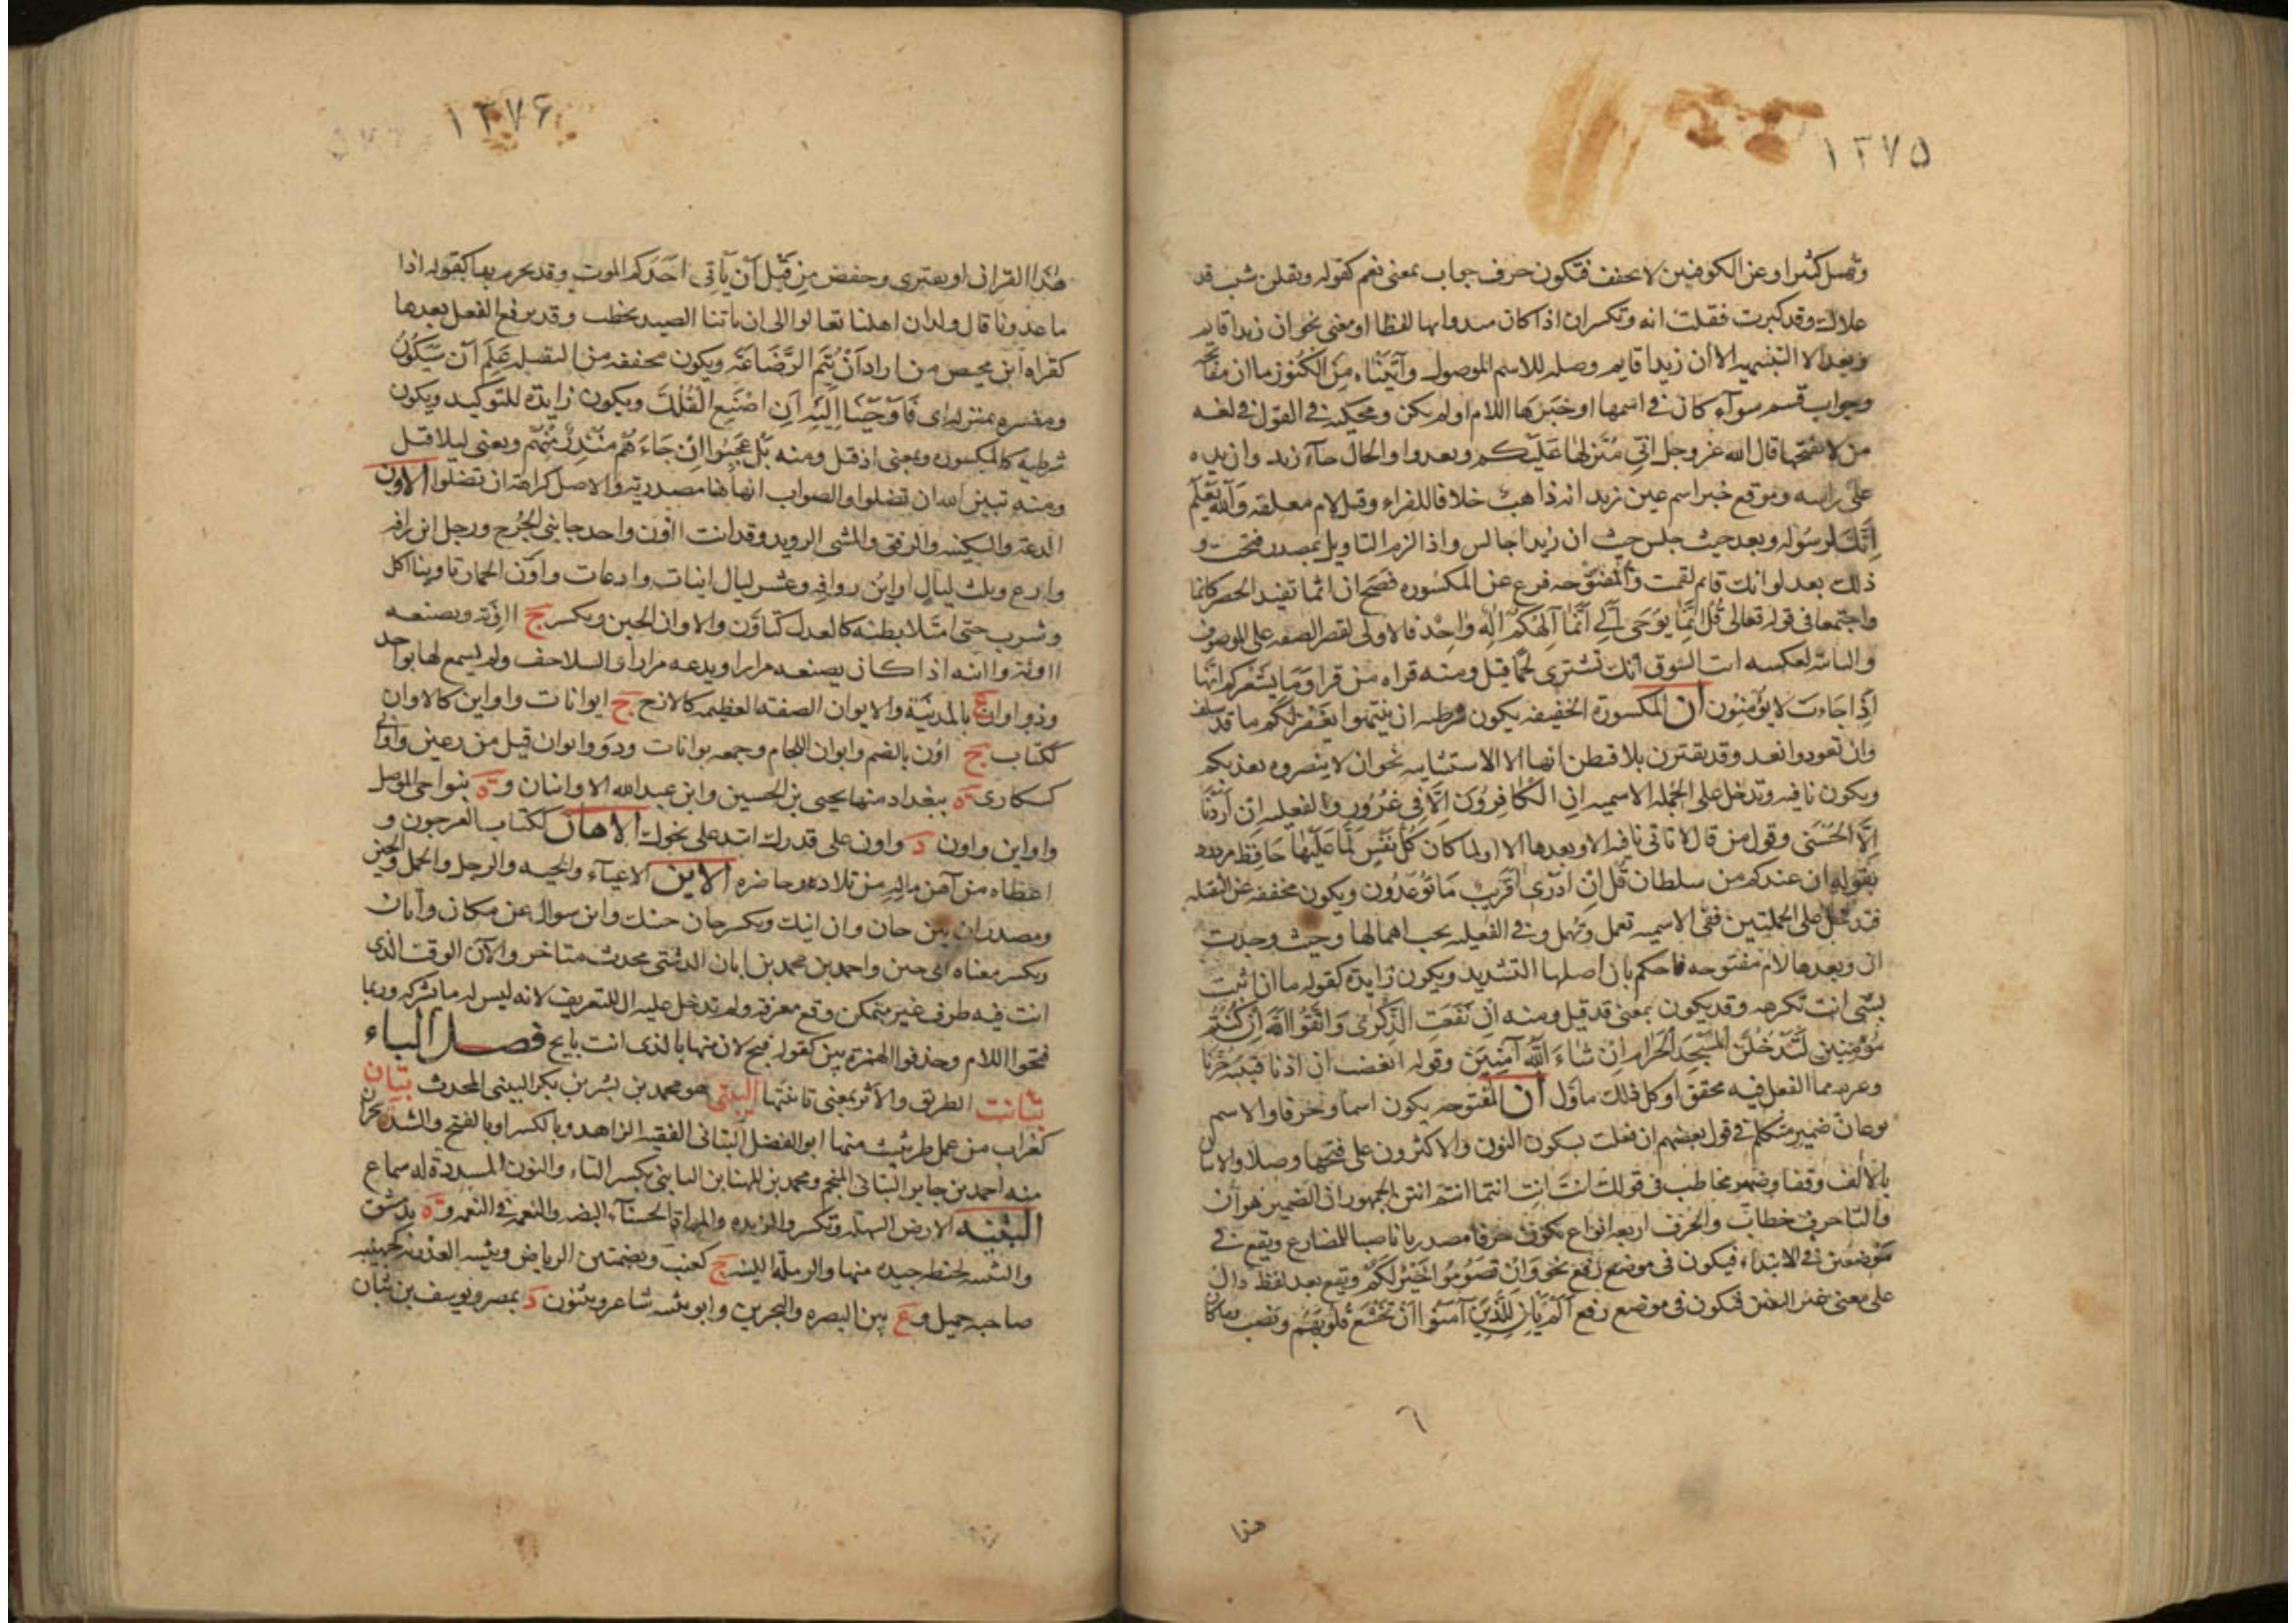 ١٣٧٥
وتعمل كثيرا وعن الكوفيين لا تخفف فتكون حرف جواب بمعنى نعم كقوله ويقلن شيب قد
علاك وقد كبرت فقلت انه وتكسر ان اذا كان مبدوا بها لفظا او معنى نحو ان زيدا قايم
وبعد الا التنبيهيه الا ان زيدا قايم وصله للاسم الموصول وآتيناه من الكنوز ما ان مفاتحه
وجواب قسم سوآء كان في اسمها او خبرها اللام او لم يكن ومحكيه في القول في لغه
من لا يفتحها قال الله عز وجل انى منزلها عليكم وبعد واو الحال جآء زيد وان يده
على راسه وموقع خبر اسم عين زيد انه ذاهب خلافا للفراء وقبل لام معلقه والله يعلم
انك لرسوله وبعد حيث جلس حيث ان زيدا جالس واذا لزم التاويل بمصدر فتحت و
ذلك بعد لو انك قايم لقمت والمفتوحه فرع عن المكسوره فصح ان انما تفيد الحصر كانما
واجتمعا في قوله تعالى قل انما يوحى الى انما الهكم اله واحد فالاولى لقصر الصفه على الموصوف
والثانيه لعكسه ائت السوق انك تشترى لحما قيل ومنه قراه من قرا وما يشعركم انها
اذا جاءت لا يؤمنون ان المكسورة الخفيفه يكون شرطيه ان ينتهوا يغفر لكم ما قد سلف
وان تعودوا نعد وقد يقترن بلا فيظن انها الا الاستثنايه نحو ان لا ينصروه يعذبكم
ويكون نافيه وتدخل على الجمله الاسميه ان الكافرون الا في غرور والفعليه ان اردنا
الا الحسنى وقول من قال لا تاتى نافيه الا وبعدها الا او لما كان كل نفس لما عليها حافظ مردود
بقوله ان عندكم من سلطان قل ان ادرى اقريب ما توعدون ويكون مخففه عن الثقيله
فتدخل على الجملتين ففى الاسميه تعمل وتهمل وفى الفعليه يجب اهمالها وحيث وجدت
ان وبعدها لام مفتوحه فاحكم بان اصلها التشديد ويكون زايدة كقوله ما ان اتيت
بشى انت تكرهه وقد يكون بمعنى قد قيل ومنه ان نفعت الذكرى واتقوا الله ان كنتم
مؤمنين لتدخلن المسجد الحرام ان شاء الله آمنين وقوله اتغضب ان اذنا قتيبه حزتا
وغيره مما الفعل فيه محقق او كل ذلك ماول ان المفتوحه يكون اسما وحرفا والاسم
نوعان ضمير متكلم في قول بعضهم ان فعلت بسكون النون والاكثرون على فتحها وصلا والاتيان
بالألف وقفا وضمير مخاطب فى قولك انت انت انتما انتم انتن الجمهور ان الضمير هو ان
والتا حرف خطاب والحرف اربعه انواع يكون حرفا مصدريا ناصبا للمضارع ويقع في
موضعين في الابتداء فيكون فى موضع رفع نحو وان تصوموا خير لكم ويقع بعد لفظ دال
على معنى غير اليقين فيكون فى موضع رفع الم يان للذين آمنوا ان تخشع قلوبهم ونصب وما كان
هذا
١٣٧۶
هذا القران ان يفترى وخفض من قبل ان يأتى احدكم الموت وقد يجزم بها كقوله اذا
ما غدونا قال ولدان اهلنا تعالوا الى ان ياتنا الصيد نحطب وقد يرفع الفعل بعدها
كقراه ابن محيصن من اراد ان يتم الرضاعة ويكون مخففه من الثقيله علم ان سيكون
ومفسره بمنزله اى فاوحينا اليه ان اصنع الفلك ويكون زايدة للتوكيد ويكون
شرطيه كالمكسوره وبمعنى اذ قيل ومنه بل عجبوا ان جاءهم منذر منهم وبمعنى ليلا قيل
ومنه تبين الله ان تضلوا والصواب انها هنا مصدريه والاصل كراهة ان تضلوا الاون
الدعة والسكينه والرفق والمشى الرويد وقد انت اؤن واحد جانبى الخرج ورجل اين رافه
وادع وثلث ليال اواين روافه وعشر ليال اينات وادعات واون الحمار تاوينا اكل
وشرب حتى امتلا بطنه كالعدل كتاون والاوان الحين ويكسر ج اآونة ويصنعه
ااونة واانه اذا كان يصنعه مرارا ويدعه مرارا والسلاحف ولم يسمع لها بواحد
وذو اوان ع بالمدينة والايوان الصفه العظيمه كالازج ج ايوانات واواين كالاوان
ككتاب ج اون بالضم وايوان اللجام وجمعه يوانات وذو ايوان قيل من رعين واوانى
كسكارى ة ببغداد منها يحيى بن الحسين وابن عبد الله الاوانيان وة بنواحى الموصل
واواين واون د واون على قدرك اتيد على نحوك الاهان ككتاب العرجون و
اعطاه من آهن ماله من تلاده وحاضره الاين الاعيآء والحيه والرجل والحمل والحين
ومصدر ان يين حان وان اينك ويكسر حان حينك واين سوال عن مكان وايان
ويكسر معناه اى حين واحمد بن محمد بن ابان الدشتى محدث متاخر والآن الوقت الذى
انت فيه ظرف غير متمكن وقع معرفة ولم تدخل عليه ال للتعريف لانه ليس له ما يشركه وربما
فتحوا اللام وحذفوا الهمزة ين كقوله فبح لان منها بالذى انت بايح فصل الباء
بتانت الطريق والاثر بمعنى تانيتها البتنى هو محمد بن بشر بن بكر البيتنى المحدث بتان
كغراب من عمل طريثيث منها ابو الفضل البتانى الفقيه الزاهد وبالكسر او بالفتح والشد ة بحران
منه احمد بن جابر البتانى المنجم ومحمد بن المهنا بن البانى بكسر التاء والنون المشددة له سماع
البثنه الارض السهله وتكسر والزبده والمراة الحسنآء البضه والنعمه في النعمه وة بدمشق
والبثنيه لحنطه جيده منها والرمله اللينه ج كعنب وبضمتين الرياض وبثينه العذريه كجهينه
صاحبه جميل وع بين البصره والبحرين وابو بثنه شاعر وبثنون د بمصر ويوسف بن بثان